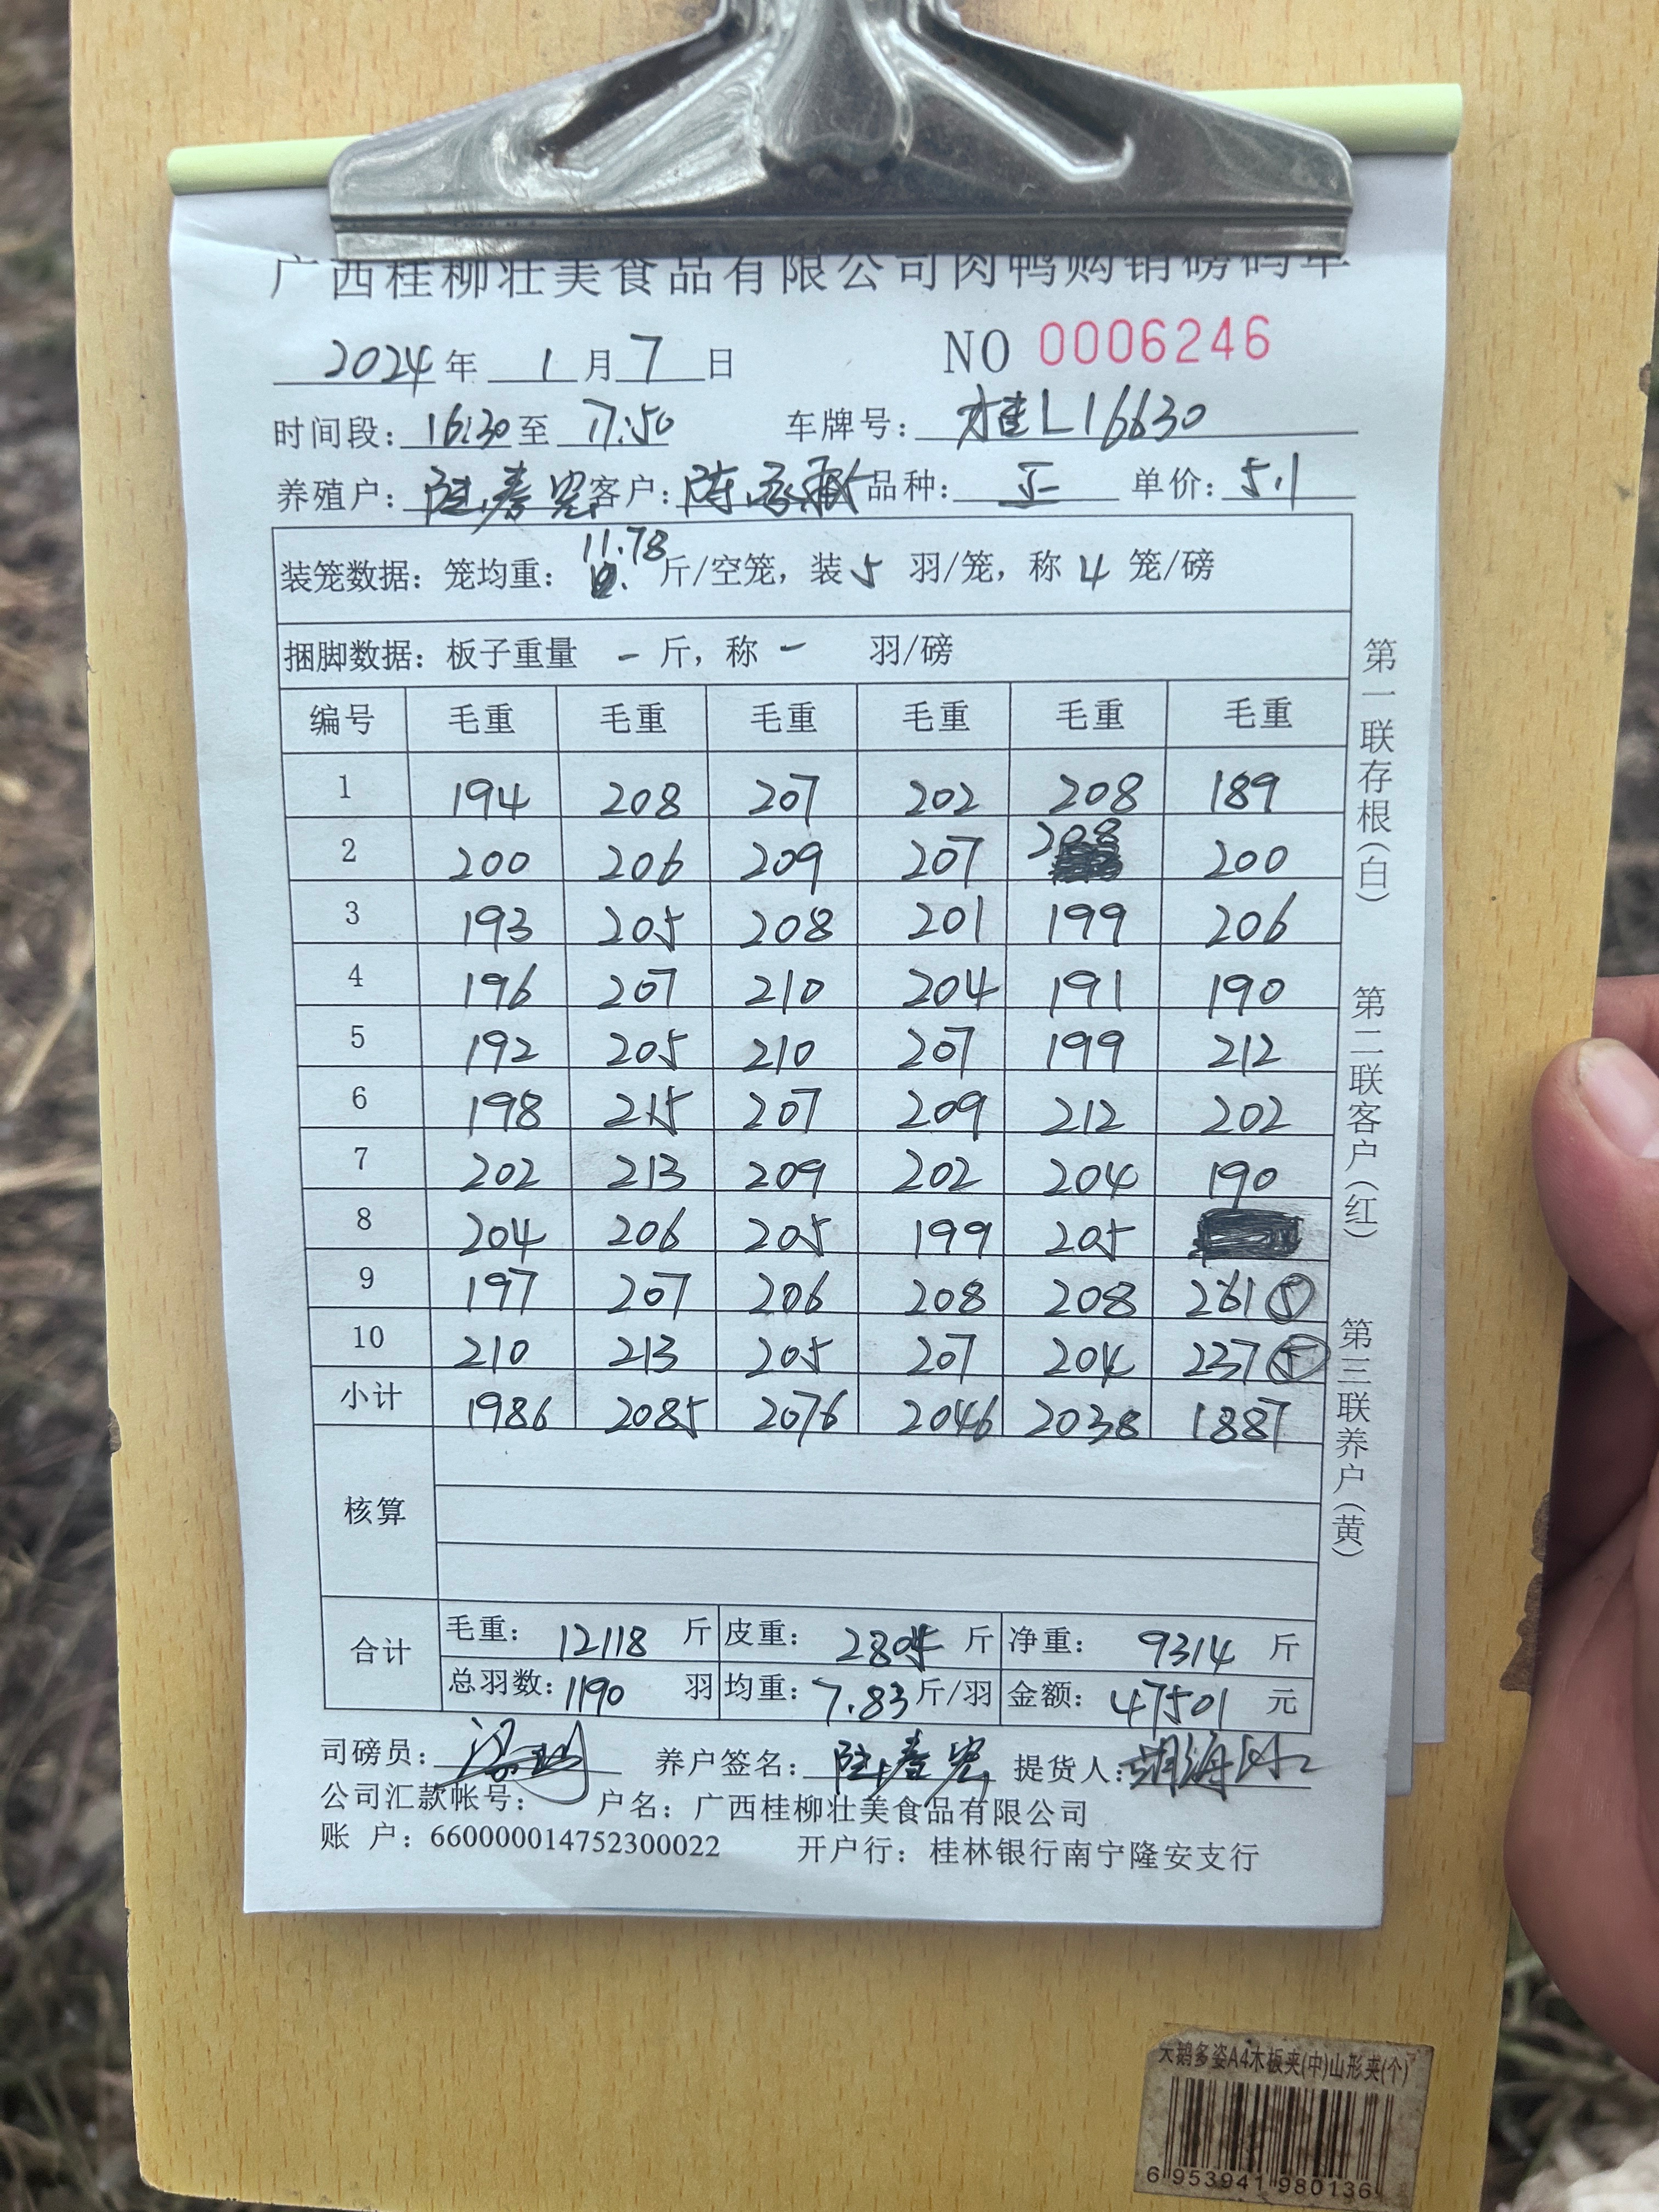 广西桂柳壮美食品有限公司肉鸭购销磅码单
2024年 1月7日 NO 0006246
时间段:16:30至 17:50 车牌号:桂L16630
养殖户:陆春宏 客户:陈 品种:正 单价:5.1
装笼数据:笼均重:11.78斤/空笼，装5 羽/笼，称4 笼/磅
捆脚数据:板子重量 - 斤，称 - 羽/磅
编号 毛重 毛重 毛重 毛重 毛重 毛重
1 194 208 207 202 208 189
2 200 206 209 207 208 200
3 193 205 208 201 199 206
4 196 207 210 204 191 190
5 192 205 210 207 199 212
6 198 215 207 209 212 202
7 202 213 209 202 204 190
8 204 206 205 199 205
9 197 207 206 208 208 261⑤
10 210 213 205 207 204 237⑤
小计 1986 2085 2076 2046 2038 1887
核算
合计 毛重: 12118 斤 皮重: 2804 斤 净重: 9314 斤
总羽数:1190 羽 均重:7.83斤/羽 金额: 47501 元
司磅员: 养户签名:陆春宏 提货人:胡海
公司汇款帐号: 户名:广西桂柳壮美食品有限公司
账 户:660000014752300022 开户行:桂林银行南宁隆安支行
第一联存根(白) 第二联客户(红) 第三联养户(黄)
天鹅多姿A4木板夹(中)山形夹(个)
6 953941 980136